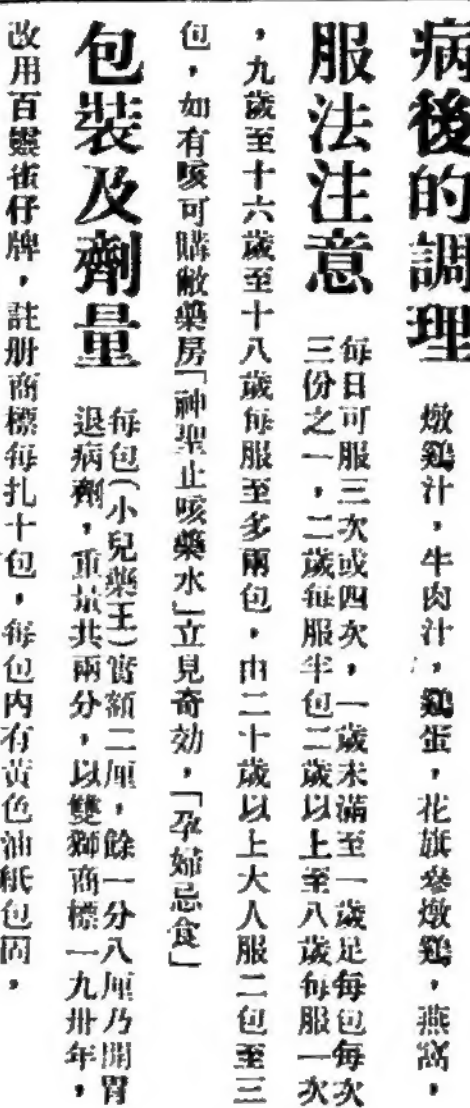 病後的調理 燉鷄汁，牛肉汁，鷄蛋，花旗參燉鷄，燕窩，
服法注意 每日可服三次或四次，一歲未滿至一歲足每包每次
三份之一，二歲每服半包二歲以上至八歲每服一次
，九歲至十六歲至十八歲每服至多兩包，由二十歲以上大人服二包至三
包，如有咳可購敝藥房「神聖止咳藥水」立見奇効，「孕婦忌食」
包裝及劑量 每包（小兒藥王）實額二厘，餘一分八厘乃開胃
退病劑，重量共兩分，以雙獅商標一九卅年，
改用百靈雀仔牌，註册商標每扎十包，每包內有黃色油紙包固，